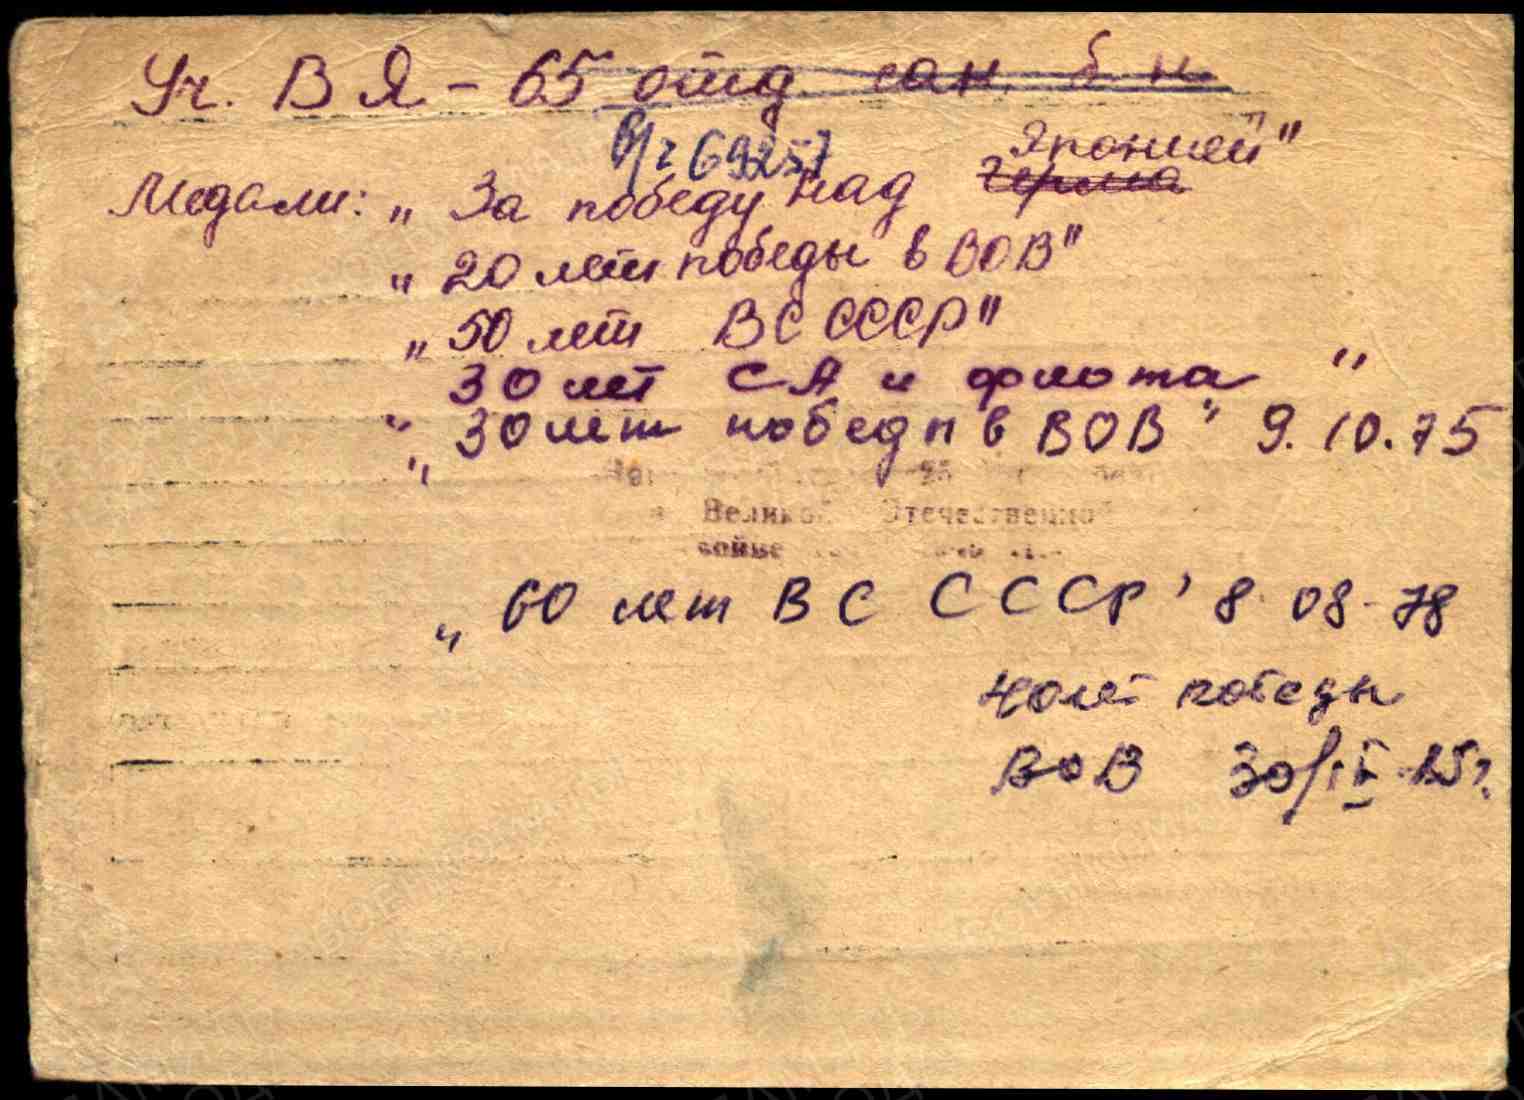 Уч. В Я - 65 отд сан. б н
в/ч 69257
Японией"
Медали: „За победу над Герма
„20 лет победы в ВОВ"
„50 лет ВС СССР"
„30 лет СА и флота"
„30 лет победы в ВОВ" 9.10.75
25
Великой Отечественной
войне
„60 лет ВС СССР" 8.08.78
40 лет победы
ВОВ 30/IV